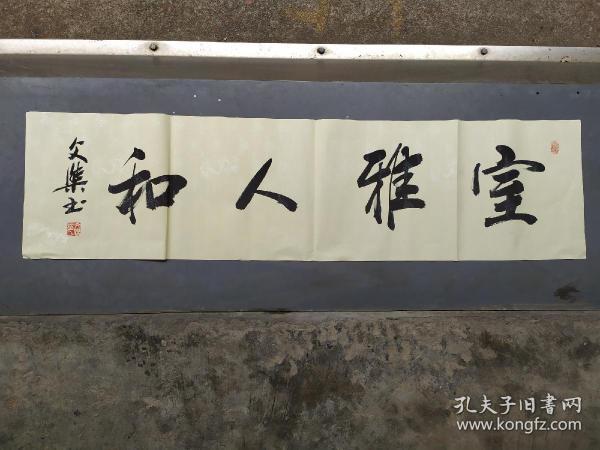 室雅人和
文集书
孔夫子旧书网
www.kongfz.com